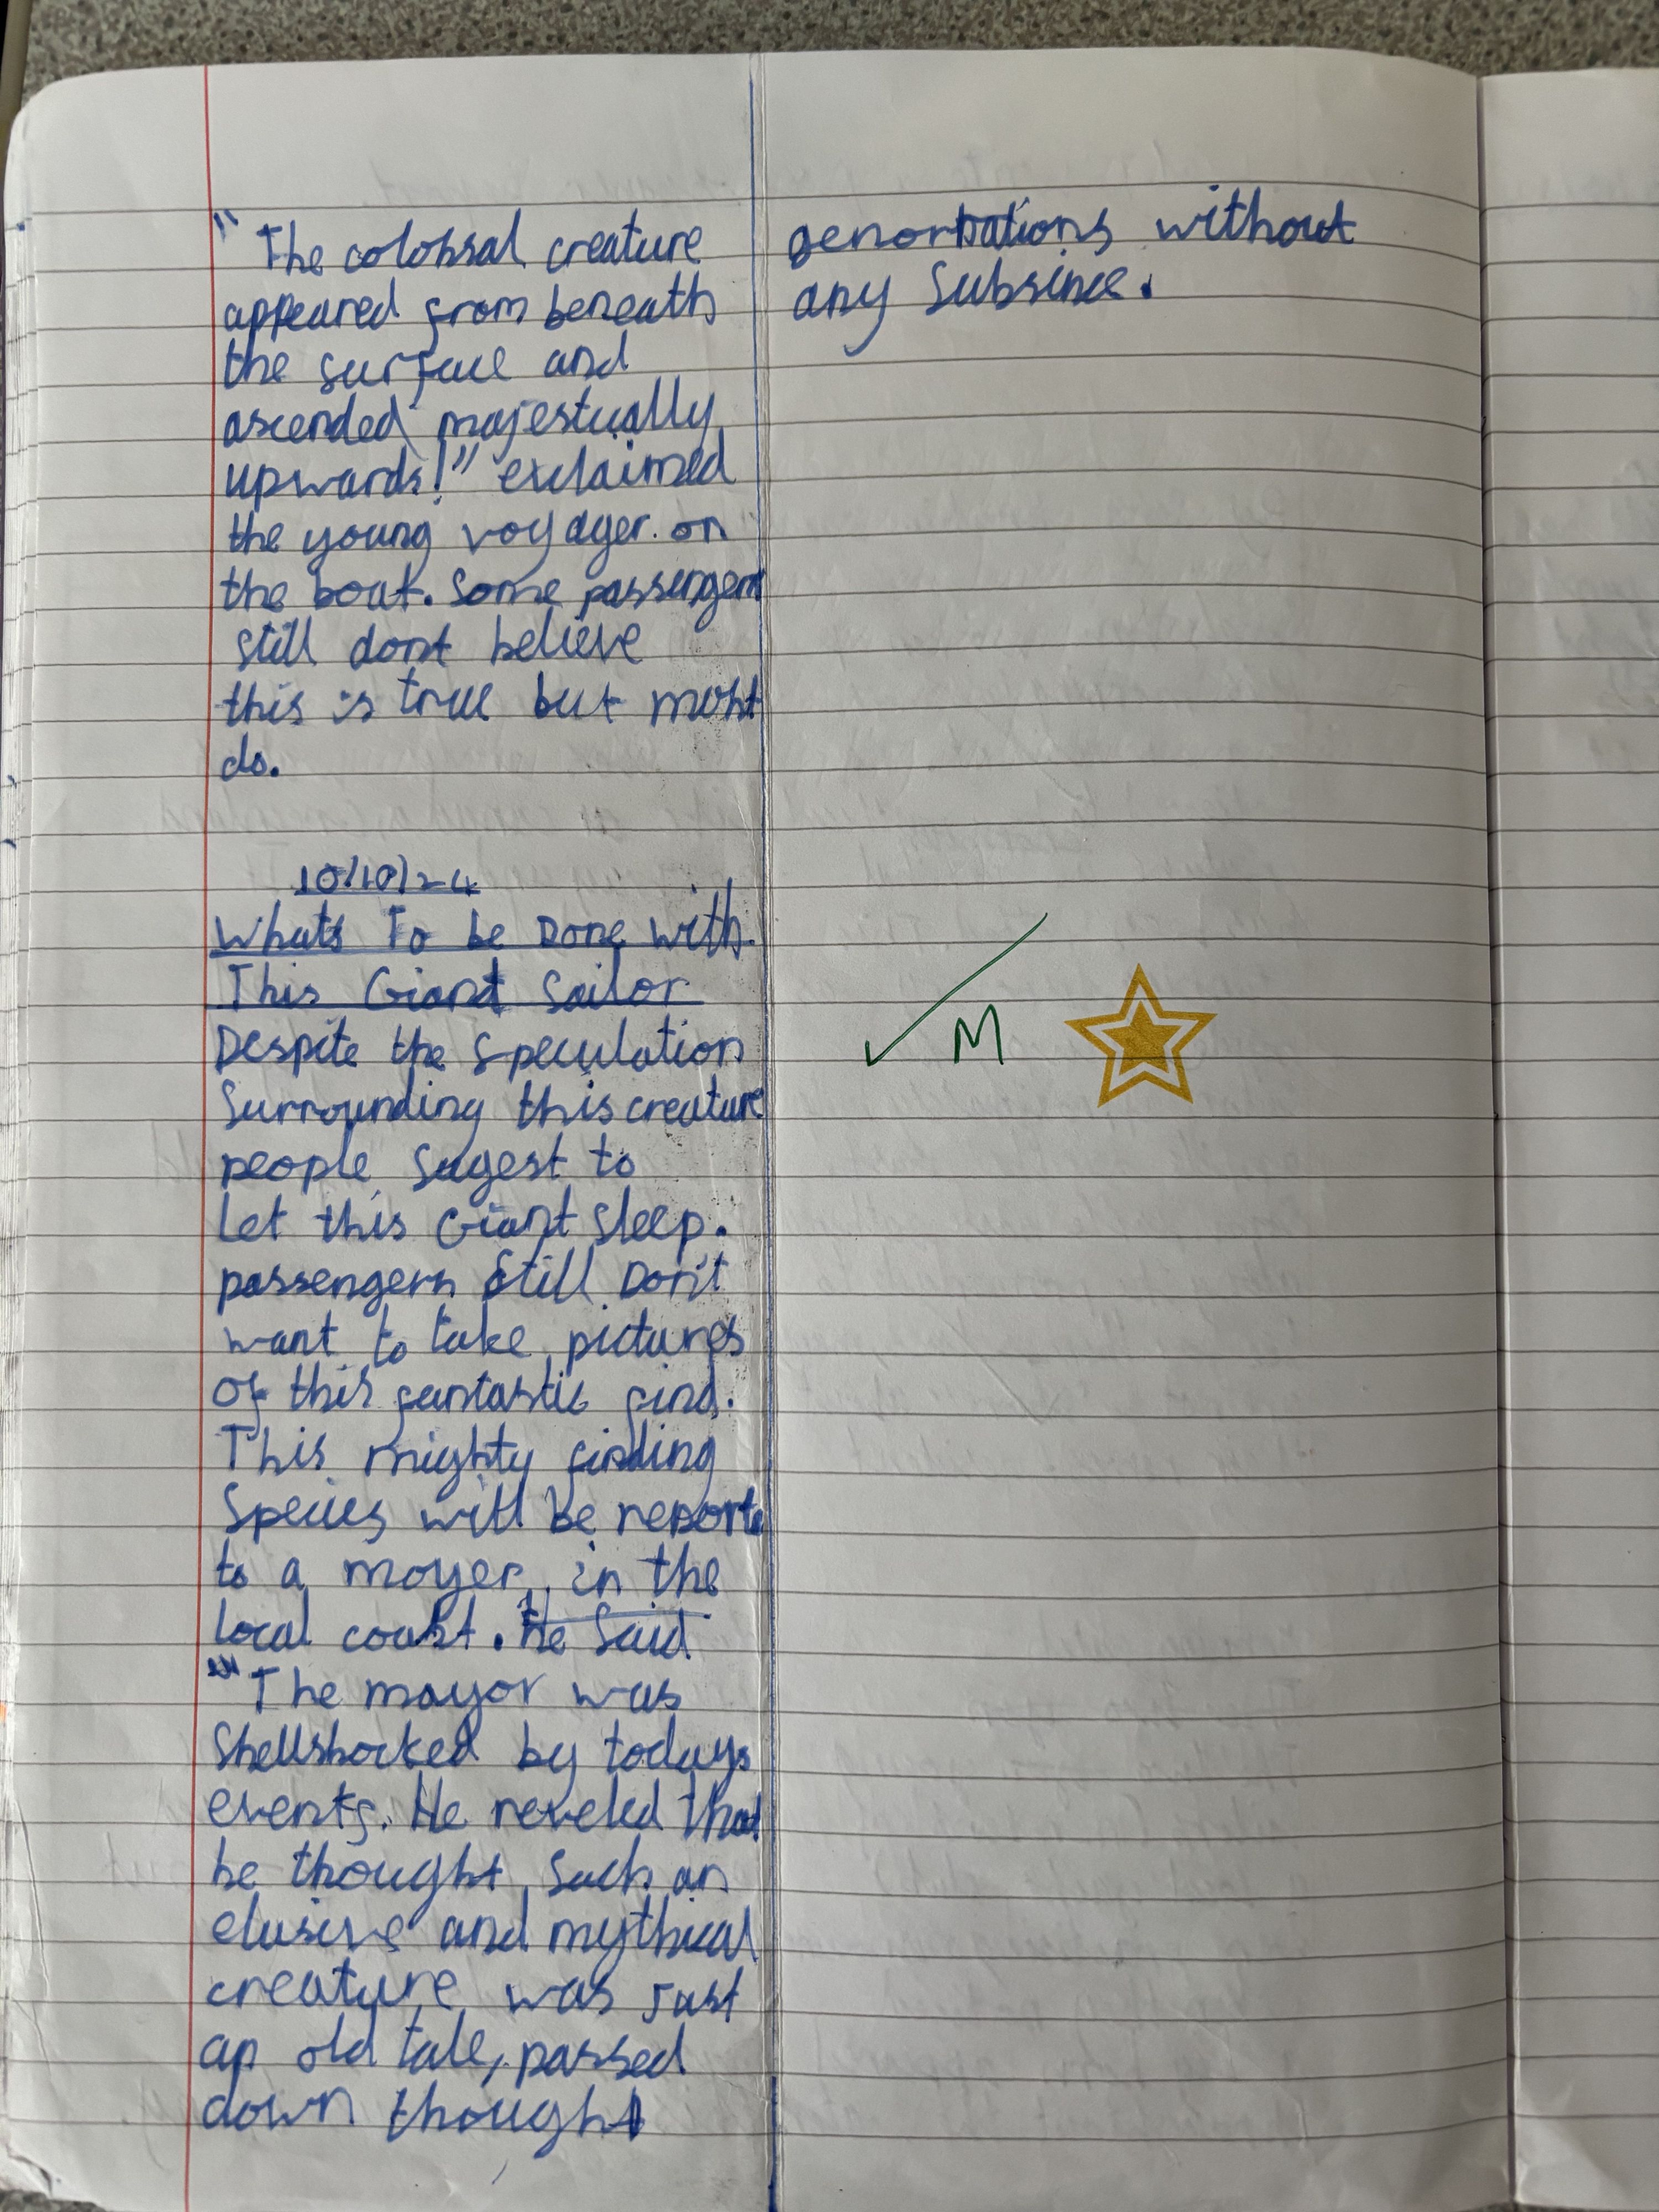 "The colossal creature
appeared from beneath
the surface and
ascended majestually
upwards!" exclaimed
the young voyager on
the boat. Some passengers
still dont believe
this is true but most
do.
10/10/24
Whats To be Done with
This Giant Sailor
Despite the speculation
Surrounding this creature
people sugest to
Let this Giant sleep.
passengers still Don't
want to take pictures
of this fantastic find.
This mighty finding
Species will be reporte
to a moyer in the
local coast. He Said
"The mayor was
Shellshocked by todays
events. He reveled that
he thought such an
elusive and mythical
creature was just
an old tale, passed
down thought
genortations without
any Subsince.
M